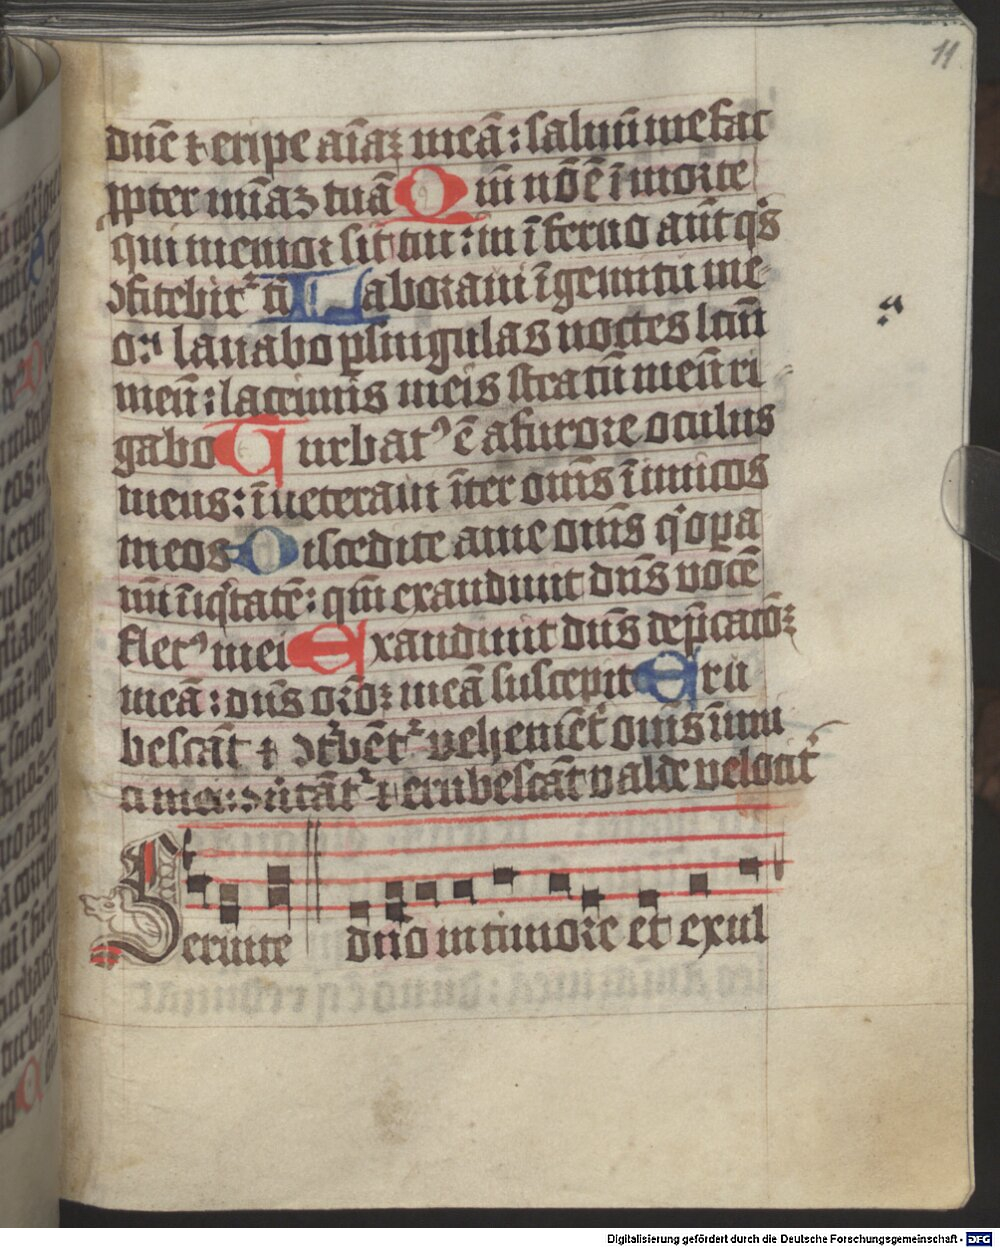 11
dn̄e ⁊ eripe aīaꝫ meā : saluū me fac
ꝓpter mīaꝫ tuā Qm̄ nō ē ī morte
qui memor sit tui : in īferno aūt qͥs
ↄfitebit᷑ ti Laboraui ī gemitu me-
o : lauabo ꝑ singulas noctes lcūt
meū : lacrimis meis stratū meū ri-
gabo Turbatꝰ ē a furore oculus
meus : īueteraui īter om̄s īimicos
meos Discedite a me om̄s qͥ oꝑa
mī īiqͥtatē : qm̄ exaudiuit dn̄s vocē
fletꝰ mei Exaudiuit dn̄s dep̄catōꝫ
meā : dn̄s orōꝫ meā suscepit Eru
bescāt ⁊ ↄt᷑bēt᷑ vehemēt̓ om̄s inim
ci mei : ↄu̓tāt᷑ ⁊ erubescāt valde velocit̓
Seruite dn̄o in timore et exul
Digitalisierung gefördert durch die Deutsche Forschungsgemeinschaft - DFG